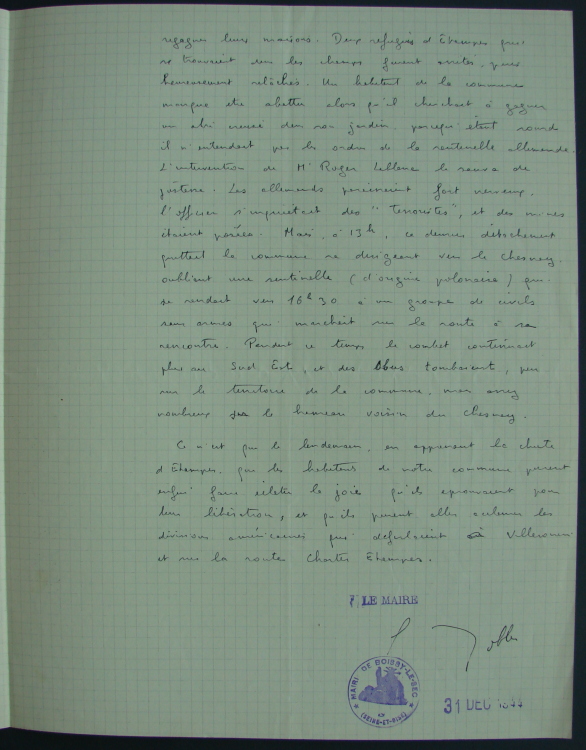 regagner leurs maisons. Deux réfugiés d'Etampes qui
se trouvaient dans les champs furent arrêtés, puis
heureusement relâchés. Un habitant de la commune
manqua être abattu alors qu'il cherchait à gagner
un abri creusé dans son jardin, parcequ'étant sourd
il n'entendait pas les ordres de la sentinelle allemande.
L'intervention de Mr Roger Leblanc le sauva de
justesse. Les allemands paraissaient fort nerveux.
l'officier s'inquiétait des "terroristes", et des mines
étaient posées. Mais, à 13h, ce dernier détachement
quittait la commune se dirigeant vers le Chesnay,
oubliant une sentinelle (d'origine polonaise) qui
se rendait vers 16h30 à un groupe de civils
sans armes qui marchait sur la route à sa
rencontre. Pendant ce temps le combat continuait
plus au Sud Est, et des obus tombaient, peu
sur le territoire de la commune, mais assez
nombreux sur le hameau voisin du Chesnay.
Ce n'est que le lendemain, en apprenant la chute
d'Etampes, que les habitants de notre commune purent
enfin faire éclater la joie qu'ils éprouvaient pour
leur libération, et qu'ils purent aller acclamer les
divisions américaines qui défilaient à Villeconin
et sur la route Chartres Etampes.
LE MAIRE
MAIRIE DE BOISSY-LE-SEC
(SEINE-ET-OISE)
31 DEC 1944